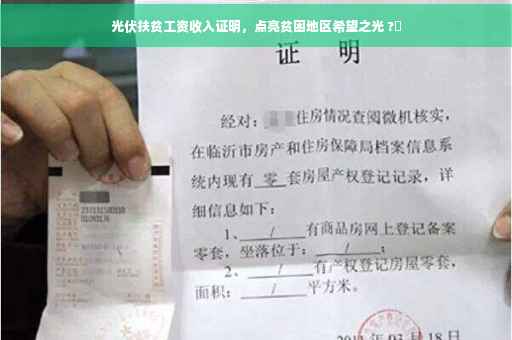 光伏扶贫工资收入证明，点亮贫困地区希望之光 ?
证 明
经对：住房情况查阅微机核实，
在临沂市房产和住房保障局档案信息系
统内现有 零 套房屋产权登记记录，详
细信息如下：
1、 / 有商品房网上登记备案
零套，坐落位于： / ；
2、 / 有产权登记房屋零套，
面积： / 平方米。
03 月 18 日